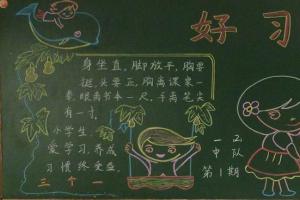 好习
身坐直,脚放平,胸要
挺,头要正,胸离课桌一
拳,眼离书本一尺,手离笔尖
有一寸。
小学生,
爱学习,养成
习惯终受益。
三个一
一(2)
中队
第1期